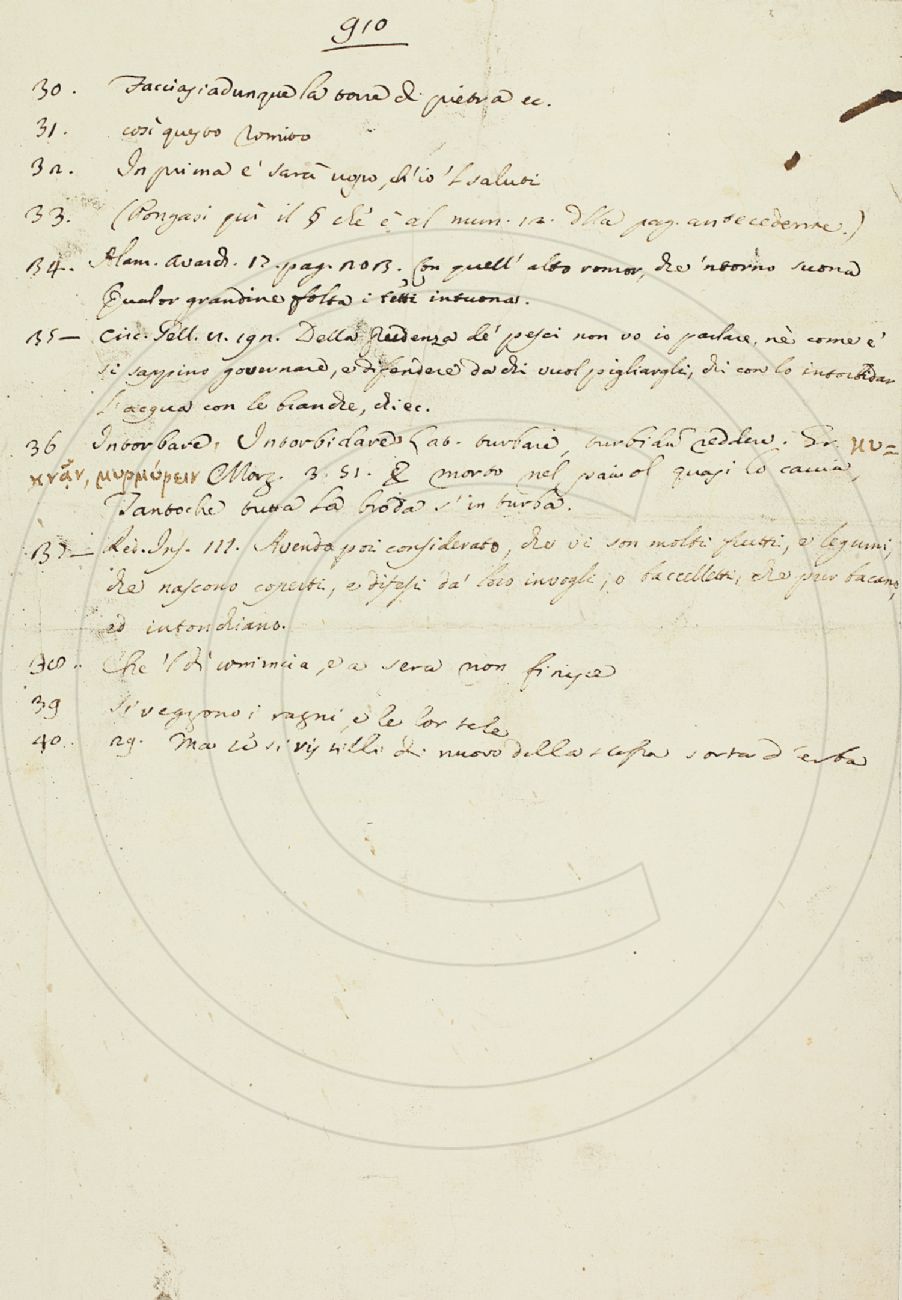 910
30. Facciasi adunque la torre di pietra ec.
31. così questo romito
32. In prima e' sarà uopo, ch'io 'l saluti
33. (Pongasi qui il § che è al num. 12. della pag. antecedente.)
34. Alam. Avarch. 17. pag. 203. Con quell' alto romor, che 'ntorno suona
Qualor grandine folta i tetti intuona.
35 — Circ. Gell. Della prudenza de' pesci non vo io parlare, nè come e'
si sappino governare, e difendere da chi vuol pigliargli, chi con lo intorbidar
l'acqua con le branche, chi ec.
36 Intorbare, Intorbidare Lat. turbare, turbidũ reddere. Gr. κυ=
κᾷν, μορμύρειν Morg. 3. 51. E morto nel paiuol quasi lo caccia,
Tantoche tutta la broda s'inturba.
37 — Red. Ins. 111. Avendo poi considerato, che vi son molti frutti, e legumi,
che nascono coperti, e difesi da' loro invogli, o baccelletti, che pur bacano,
ed intonchiano.
38. Che 'l dì comincia, e a sera non finisce
39 Si veggono i ragni, e le lor tele
40. 29. Ma se si vi si della stessa sorta d'erba